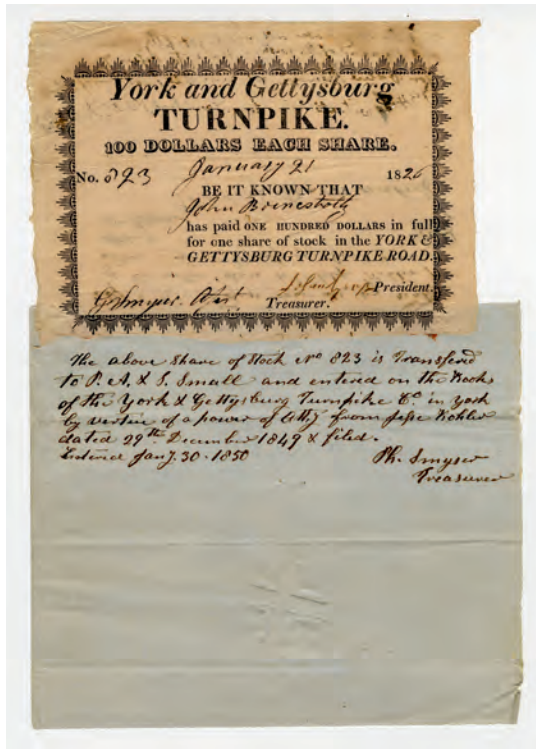 York and Gettysburg
TURNPIKE.
100 DOLLARS EACH SHARE.
No. 823 January 21 1826
BE IT KNOWN THAT
John
has paid ONE HUNDRED DOLLARS in full
for one share of stock in the YORK &
GETTYSBURG TURNPIKE ROAD.
President.
Smyser
Treasurer.
The above Share of Stock No 823 is Transfered
to P. A. & S. Small and entered on the Books
of the York & Gettysburg Turnpike Co. in York
by vertue of a power of Atty from Jesse Kohler
dated 29th December 1849 & filed.
Entered Jany. 30. 1850
Ph. Smyser
Treasurer